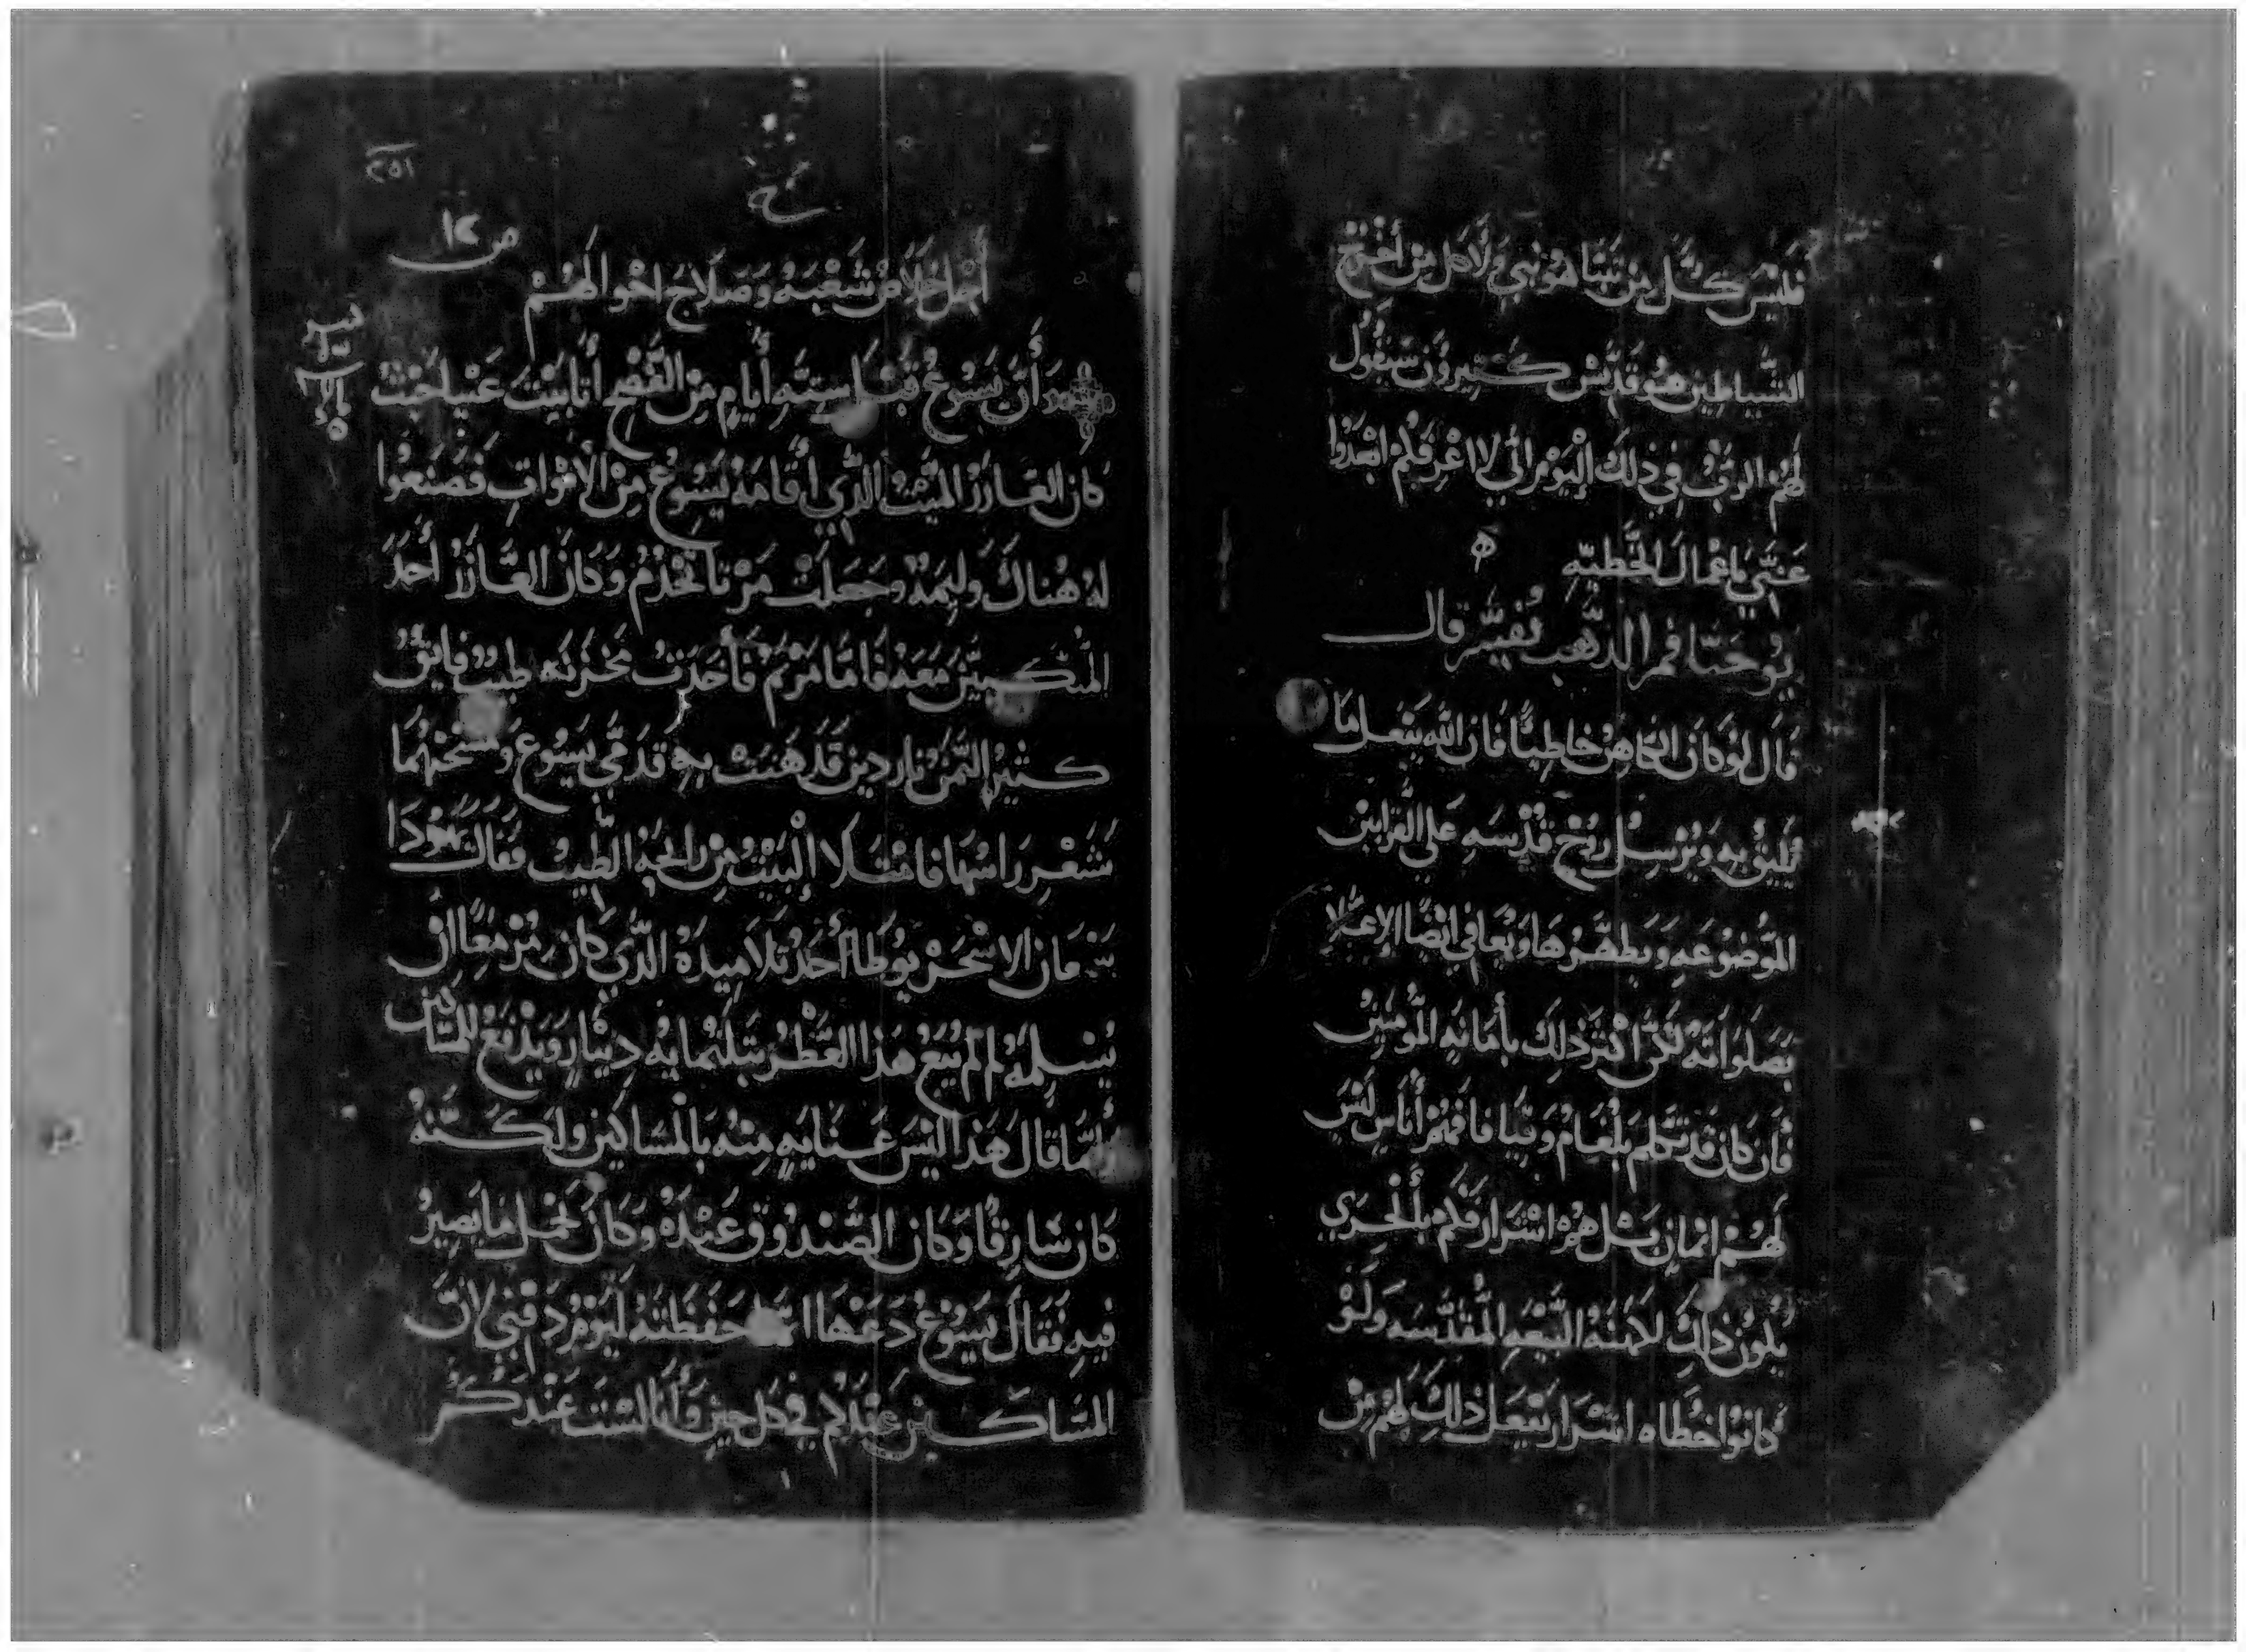 فليس كل من تنبا هو نبي ولا كل من أخرج
الشياطين هو قديس كثيرون سيقول
لهم الرب في ذلك اليوم اني لا اعرفكم ابعدوا
عني يا عمال الخطيه
يوحنا فم الذهب تفسير قال
قال لو كان الكاهن خاطيًا فان الله يفعل ما
يليق به ويرسل روح قدسه على القرابين
الموضوعه ويطهرها ويعافي ايضًا الاعلا
بصلواته لكن اكثر ذلك بأمانه المومنين
فأن كان قد تكلم بلعام وقيافا فمهم أناس ليس
لهم ايمان بل هم اشرار فكم بالحري
يكون ذلك لامنه البيعه المقدسه ولو
كانوا خطاه اشرار يفعل ذلك لهم من
أجل خلاص شعبه وصلاح احوالهم
أن يسوع قبل ستة أيام من الفصح أتا بيت عنيا حيث
كان العازر الميت الذي أقامه يسوع من الأموات فصنعوا
له هناك وليمة وجعلت مرتا تخدم وكان العازر أحد
المتكيين معه فاما مريم فأخذت مخزنه طيب فايق
كثير الثمن ناردين قدهنت به قدمي يسوع ومسحتهما
بشعر راسها فامتلا البيت من رايحة الطيب فقال يهودا
سمعان الاسخريوطا أحد تلاميده الذي كان مزمعا ان
يسلمه لم لم يبع هذا العطر بتلتمايه دينار ويدفع للمساكين
وانما قال هذا ليس عنايه منه بالمساكين ولكنه
كان سارقًا وكان الصندوق عنده وكان يحمل ما يصير
فيه فقال يسوع دعها انما حفظته ليوم دفني لان
المساكين عندكم في كل حين وأنا لست عندكم